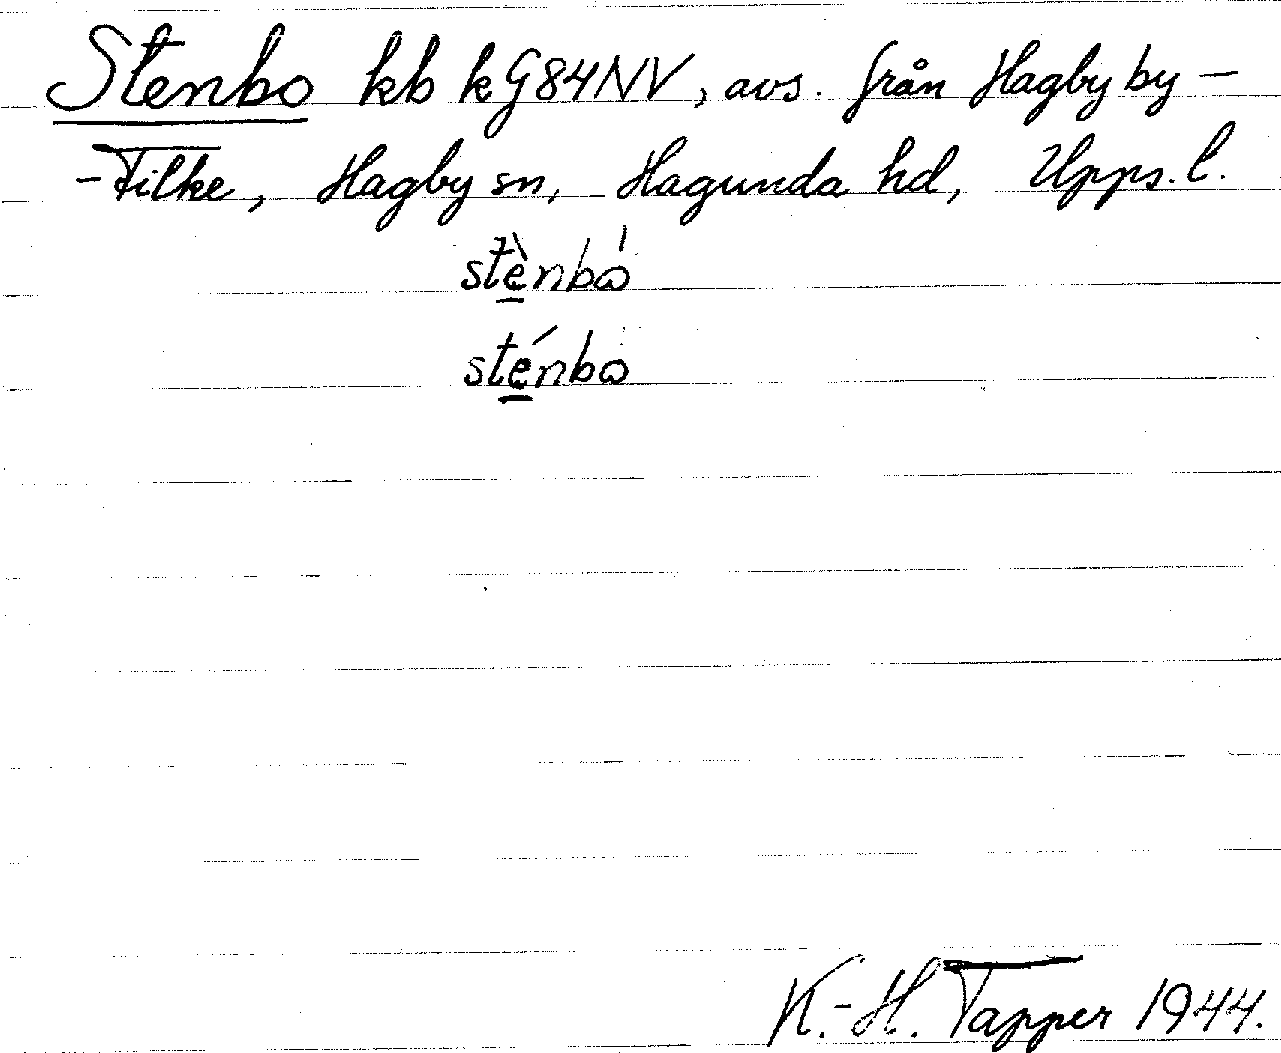 Stenbo kb kG84NV, avs. från Hagby by –
– Filke, Hagby sn, Hagunda hd, Upps. l.
stè̲nbω̍
sté̲nbω
K.-H. Tapper 1944.